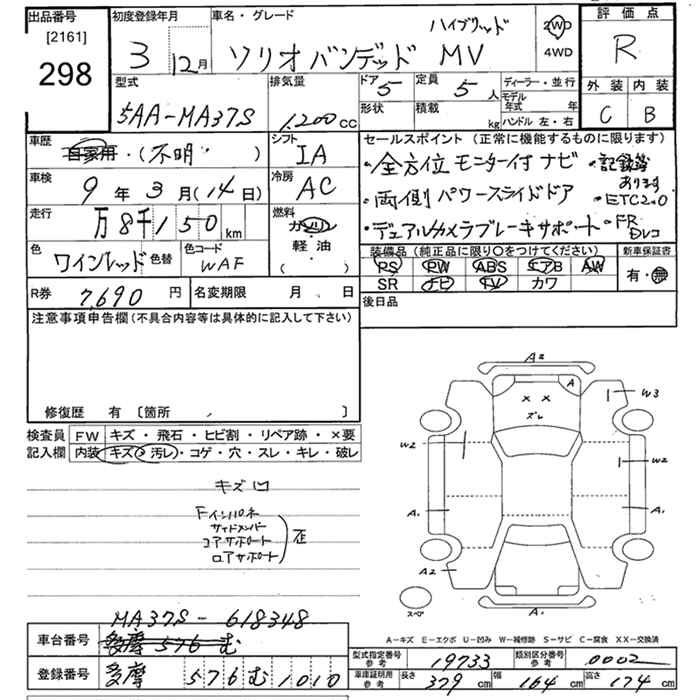 出品番号 [2161] 298
初度登録年月 3 12月
車名・グレード ソリオ バンデッド ハイブリッド MV
2WD 4WD
評価点 R
外装 内装
C B
型式 5AA-MA37S
排気量 1,200cc
ドア 5 定員 5人
形状 積載 kg
ディーラー・並行
モデル年式 年
ハンドル 左・右
車歴 自家用 (不明)
シフト IA
車検 9年3月(14日)
冷房 AC
走行 万8千150km
燃料 ガソリン 軽油 ( )
色 ワインレッド 色替
色コード WAF
セールスポイント (正常に機能するものに限ります)
・全方位モニター付ナビ ・記録簿あります
・両側パワースライドドア ・ETC2.0
・デュアルカメラブレーキサポート ・FRDレコ
装備品 (純正品に限り〇をつけてください) 新車保証書
PS PW ABS エアB AW 有・無
SR ナビ TV カワ
R券 7,690円
名変期限 月 日
後日品
注意事項申告欄 (不具合内容等は具体的に記入して下さい)
修復歴 有 [箇所 ]
検査員 記入欄
FW キズ・飛石・ヒビ割・リペア跡・×要
内装 キズ・汚レ・コゲ・穴・スレ・キレ・破レ
キズ凹
Fインパネ
サイドメンバー
コアサポート
ロアサポート
歪
A2
A
× ×
ズレ
W3
W2
W2
A1
A1
A2
スペア
A1
MA37S-618348
車台番号 多摩 576 む
登録番号 多摩 576 む 1010
A-キズ E-エクボ U-凹み W-補修跡 S-サビ C-腐食 XX-交換済
型式指定番号 参考 19733
類別区分番号 参考 0002
車庫証明用 参考 長さ 379cm 幅 164cm 高さ 174cm